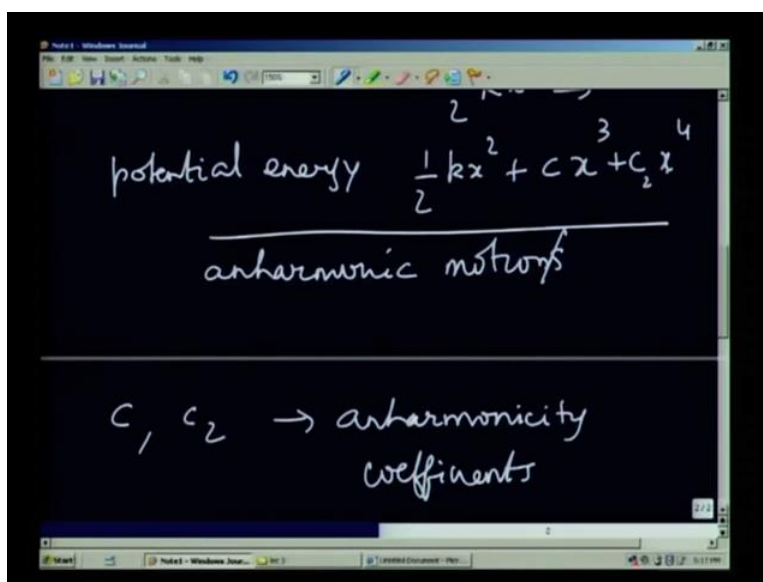 Note1 - Windows Journal
File Edit View Insert Actions Tools Help
150%
2
potential energy 1/2 kx² + cx³ + c₂x⁴
anharmonic motions
c, c₂ → anharmonicity
coefficients
2/2
2
Start Note1 - Windows Jour... Untitled Document - Me... 5:17 PM